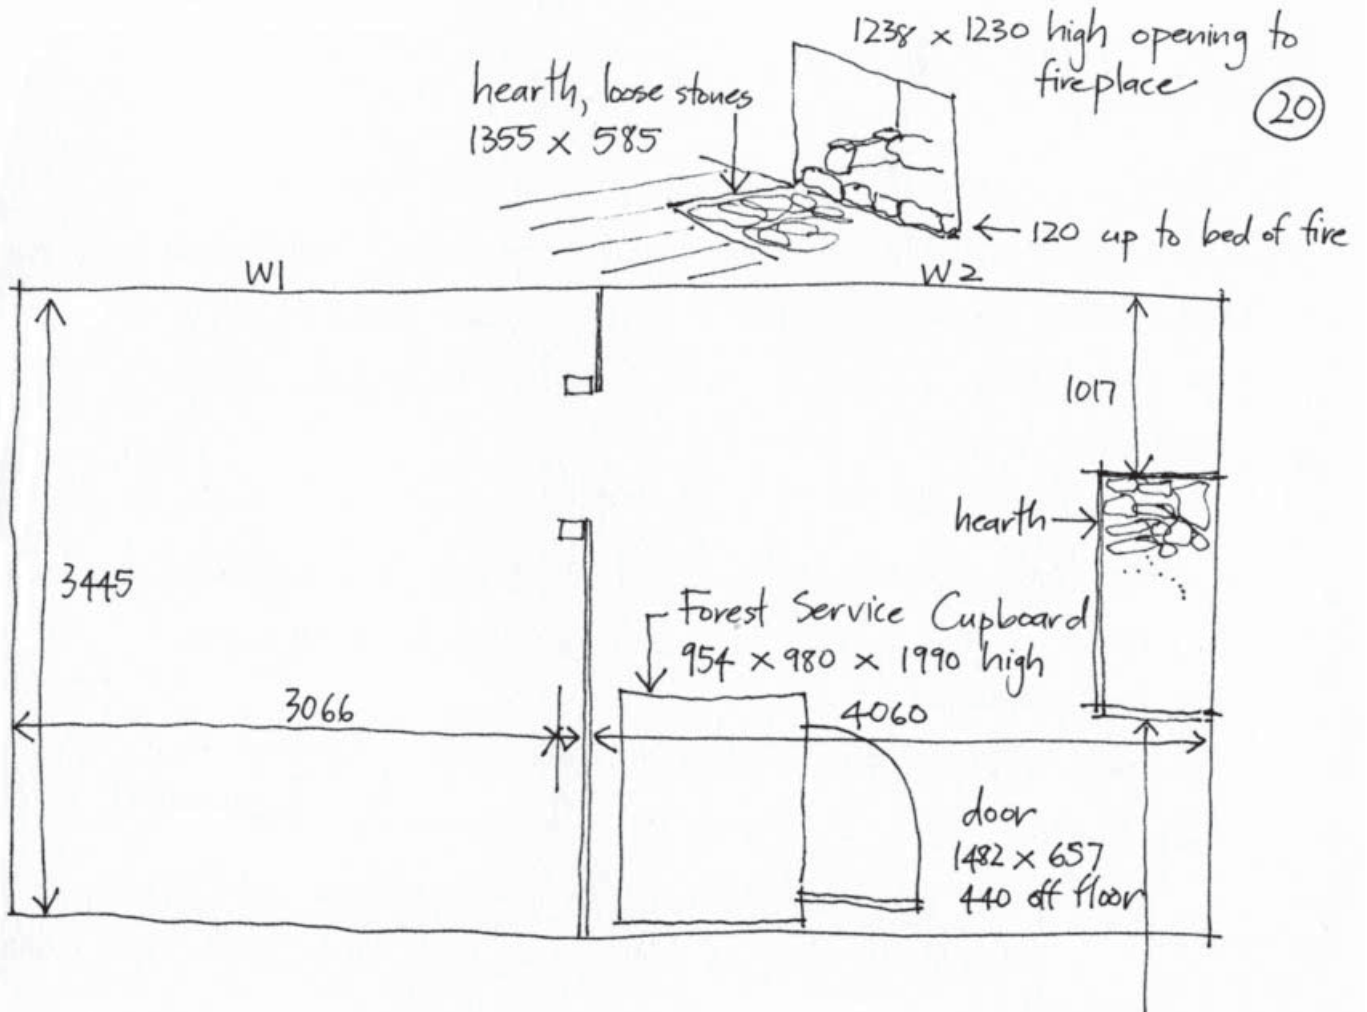 1238 x 1230 high opening to
fireplace
20
hearth, loose stones
1355 x 585
120 up to bed of fire
W1
W2
1017
hearth
3445
Forest Service Cupboard
954 x 980 x 1990 high
3066
4060
door
1482 x 657
440 off floor